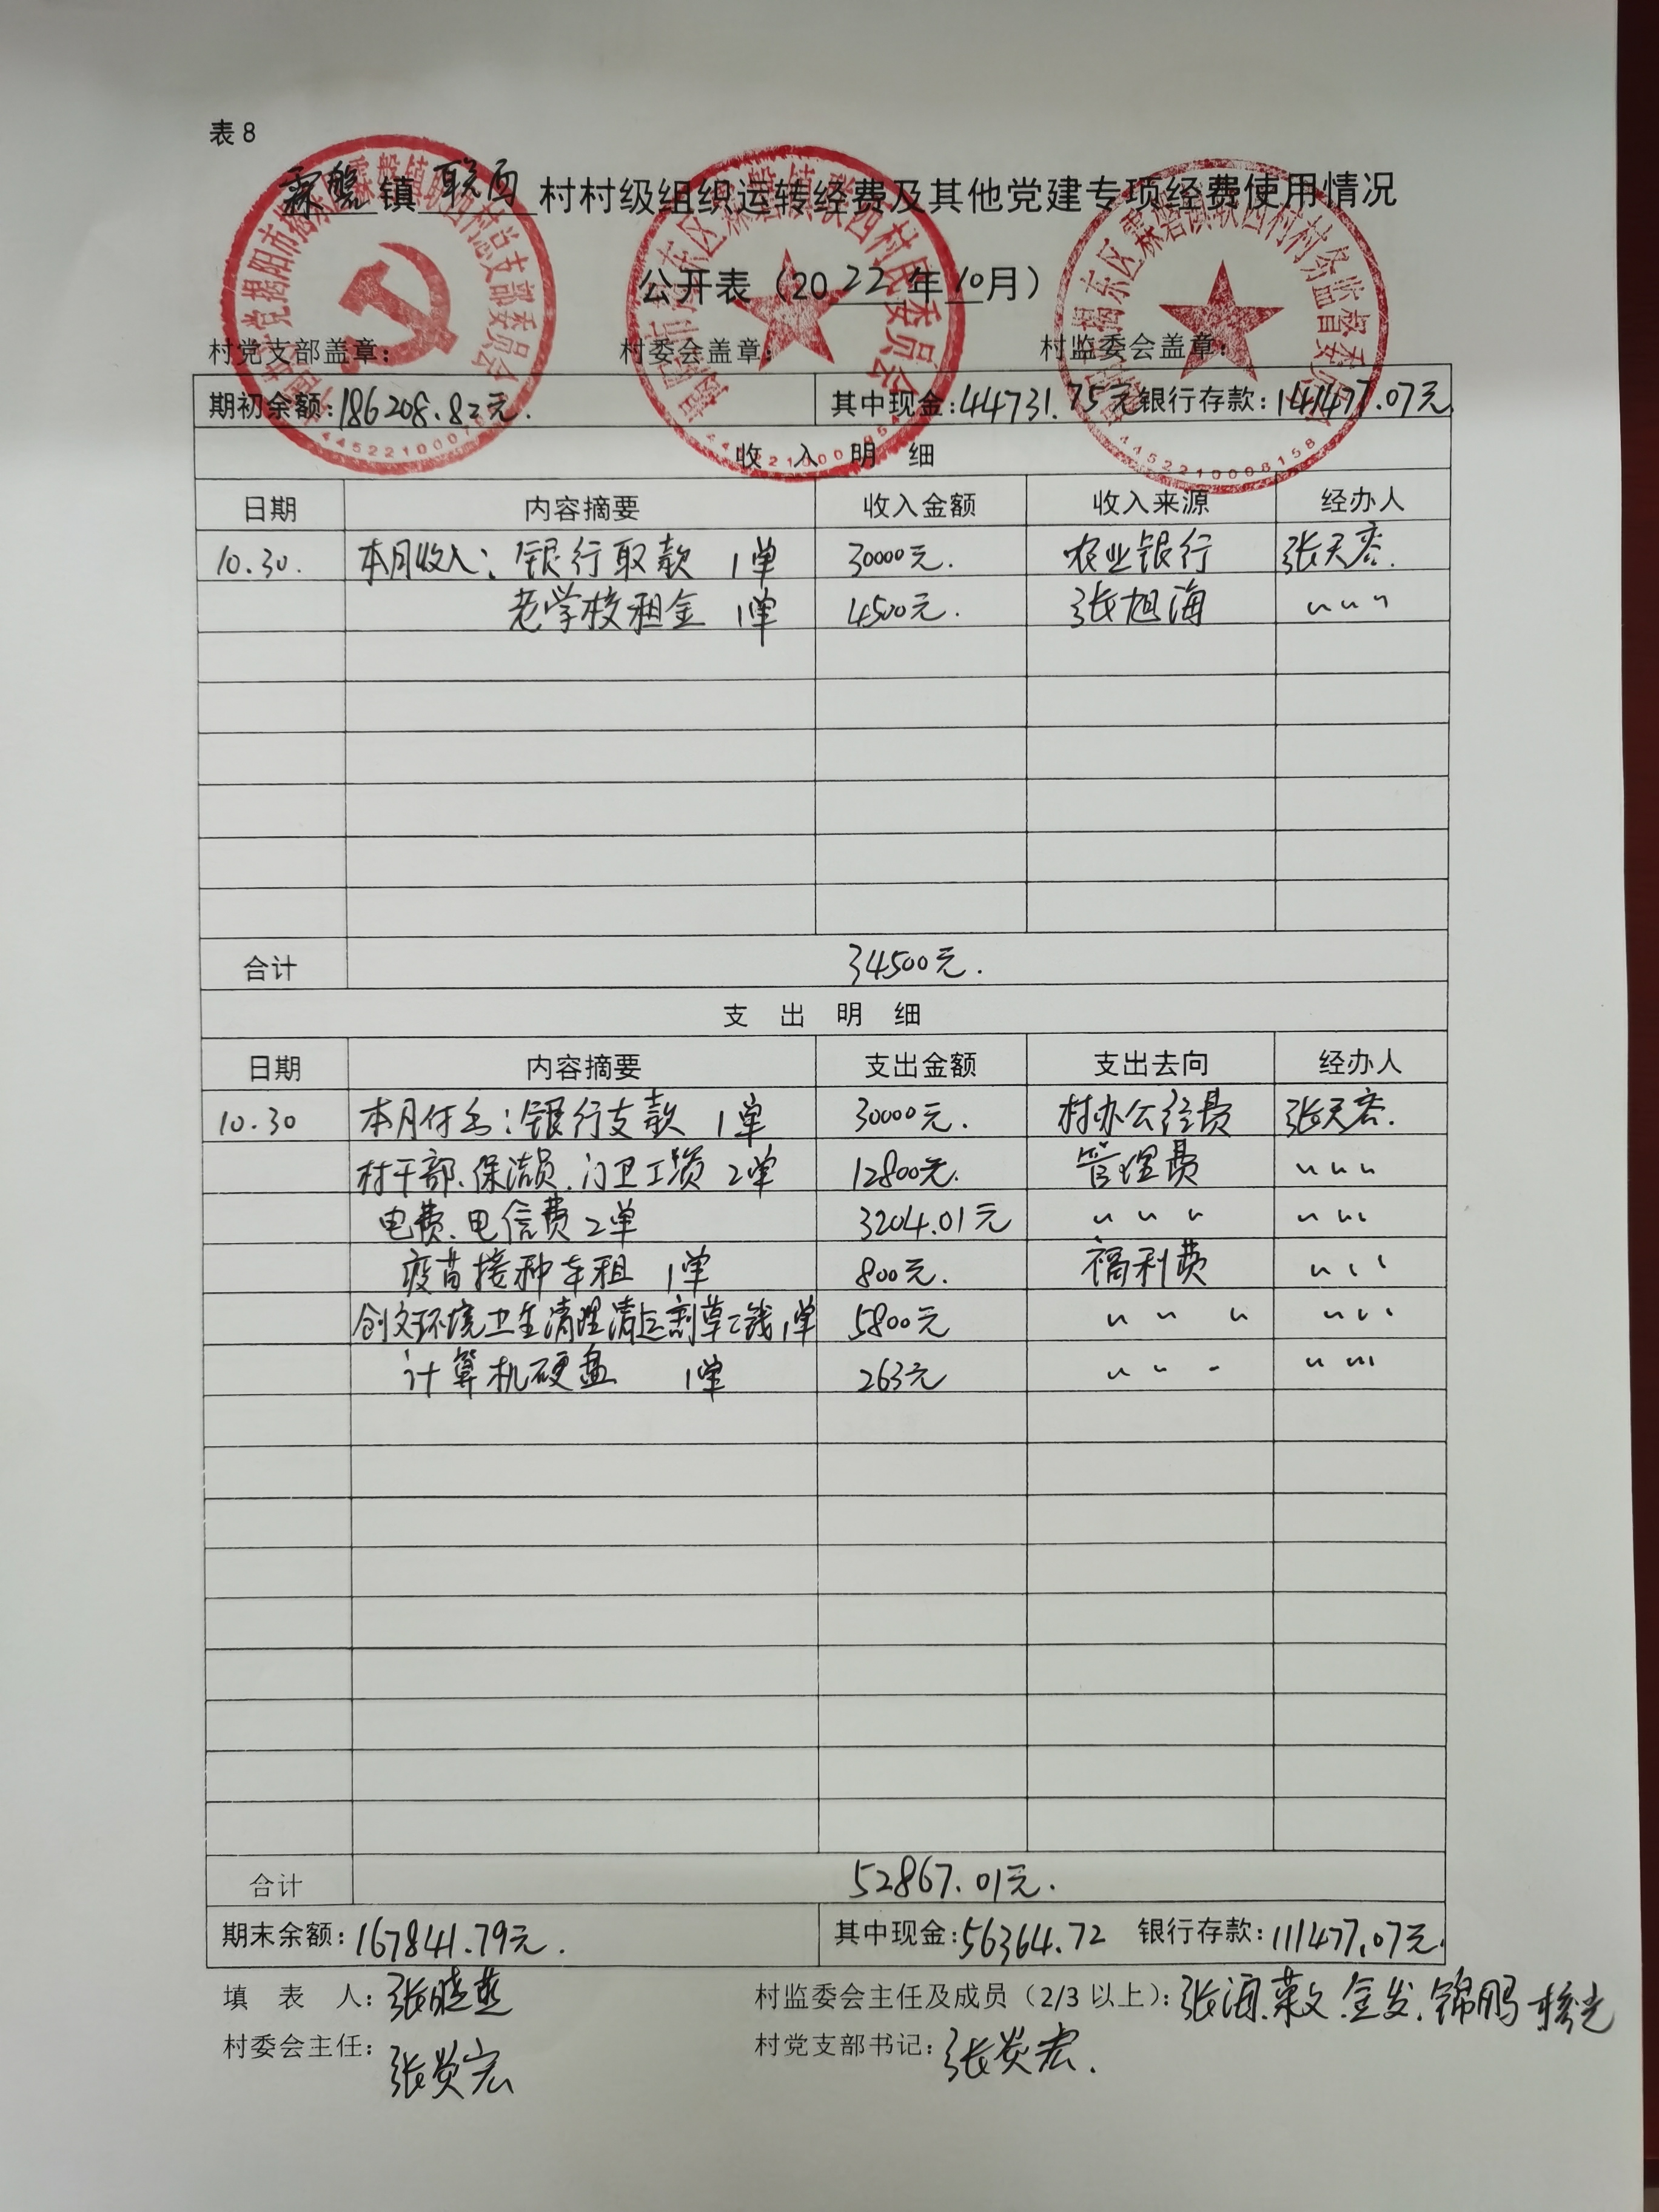 表8
霖磐镇联西村村级组织运转经费及其他党建专项经费使用情况
公开表（2022年10月）
村党支部盖章： 村委会盖章： 村监委会盖章：
期初余额：186208.82元. 其中现金：44731.75元 银行存款：141477.07元
收入明细
日期 内容摘要 收入金额 收入来源 经办人
10.30. 本月收入：银行取款 1单 30000元. 农业银行 张天
老学校租金 1单 4500元. 张旭海 〃〃〃
合计 34500元.
支出明细
日期 内容摘要 支出金额 支出去向 经办人
10.30 本月付出：银行支款 1单 30000元. 村办公经费 张天
村干部、保洁员、门卫工资 2单 12800元. 管理费 〃〃〃
电费、电信费2单 3204.01元 〃〃〃 〃〃〃
疫苗接种车租 1单 800元. 福利费 〃〃〃
创文环境卫生清理清运割草工钱1单 5800元 〃〃〃 〃〃〃
计算机硬盘 1单 263元 〃〃〃 〃〃〃
合计 52867.01元.
期末余额：167841.79元. 其中现金：56364.72 银行存款：111477.07元.
填表人：张晓燕 村监委会主任及成员（2/3以上）：张海.荣文.金发.锦鹏
村委会主任：张 宏 村党支部书记：张 宏.